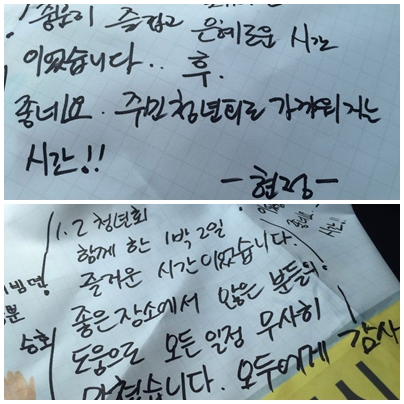 즐겁고 은혜로운 시간
이었습니다.. 후.
좋네요. 가까워지는
시간!!
-현정-
1.2 청년회
함께 한 1박 2일
즐거운 시간이었습니다.
좋은 장소에서 많은 분들의
도움으로 모든 일정 무사히
마쳤습니다. 모두에게 감사
승회